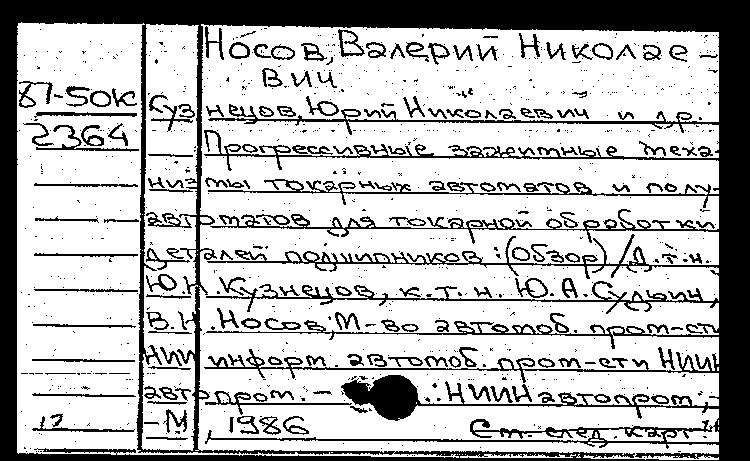 Носов, Валерий Николае-
вич
87-50к
2364
Кузнецов, Юрий Николаевич и др.
Прогрессивные зажитные меха-
низмы токарных автоматов и полу-
автоматов для токарной обработки
деталей подшипников : (Обзор) / Д.т.н.
Ю.Н. Кузнецов, к.т.н. Ю.А. Сулыин,
В.Н. Носов; М-во автомоб. пром-сти
НИИ информ. автомоб. пром-сти НИИН
автопром. – .: НИИН автопром,-
-М, 1986
12
См. след. карт.